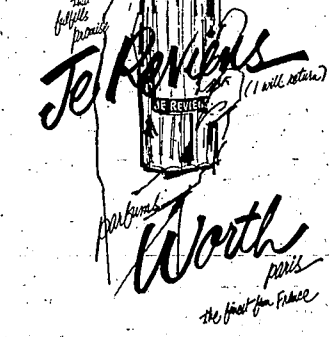 that
fulfills
promise
Je Reviens
(I will return)
JE REVIENS
parfums
Worth
paris
the finest from France